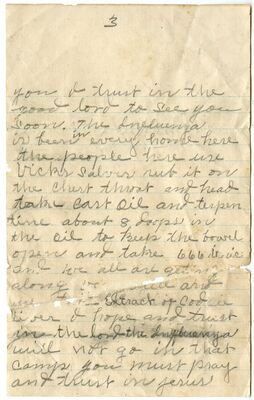 3
you I trust in the
good lord to see you
soon. The Influenza
is been in every home here
the people here use
Vicks Salver rub it on
the Chest throat and head
take Cast oil and turpen
tine about 8 drops in
the oil to keep the bowel
open and take 666 it is
and we all are
along and
Extract of Codliver
liver I hope and trust
in the lord the Influenza
will not go in that
Camp you must pray
and trust in Jesus